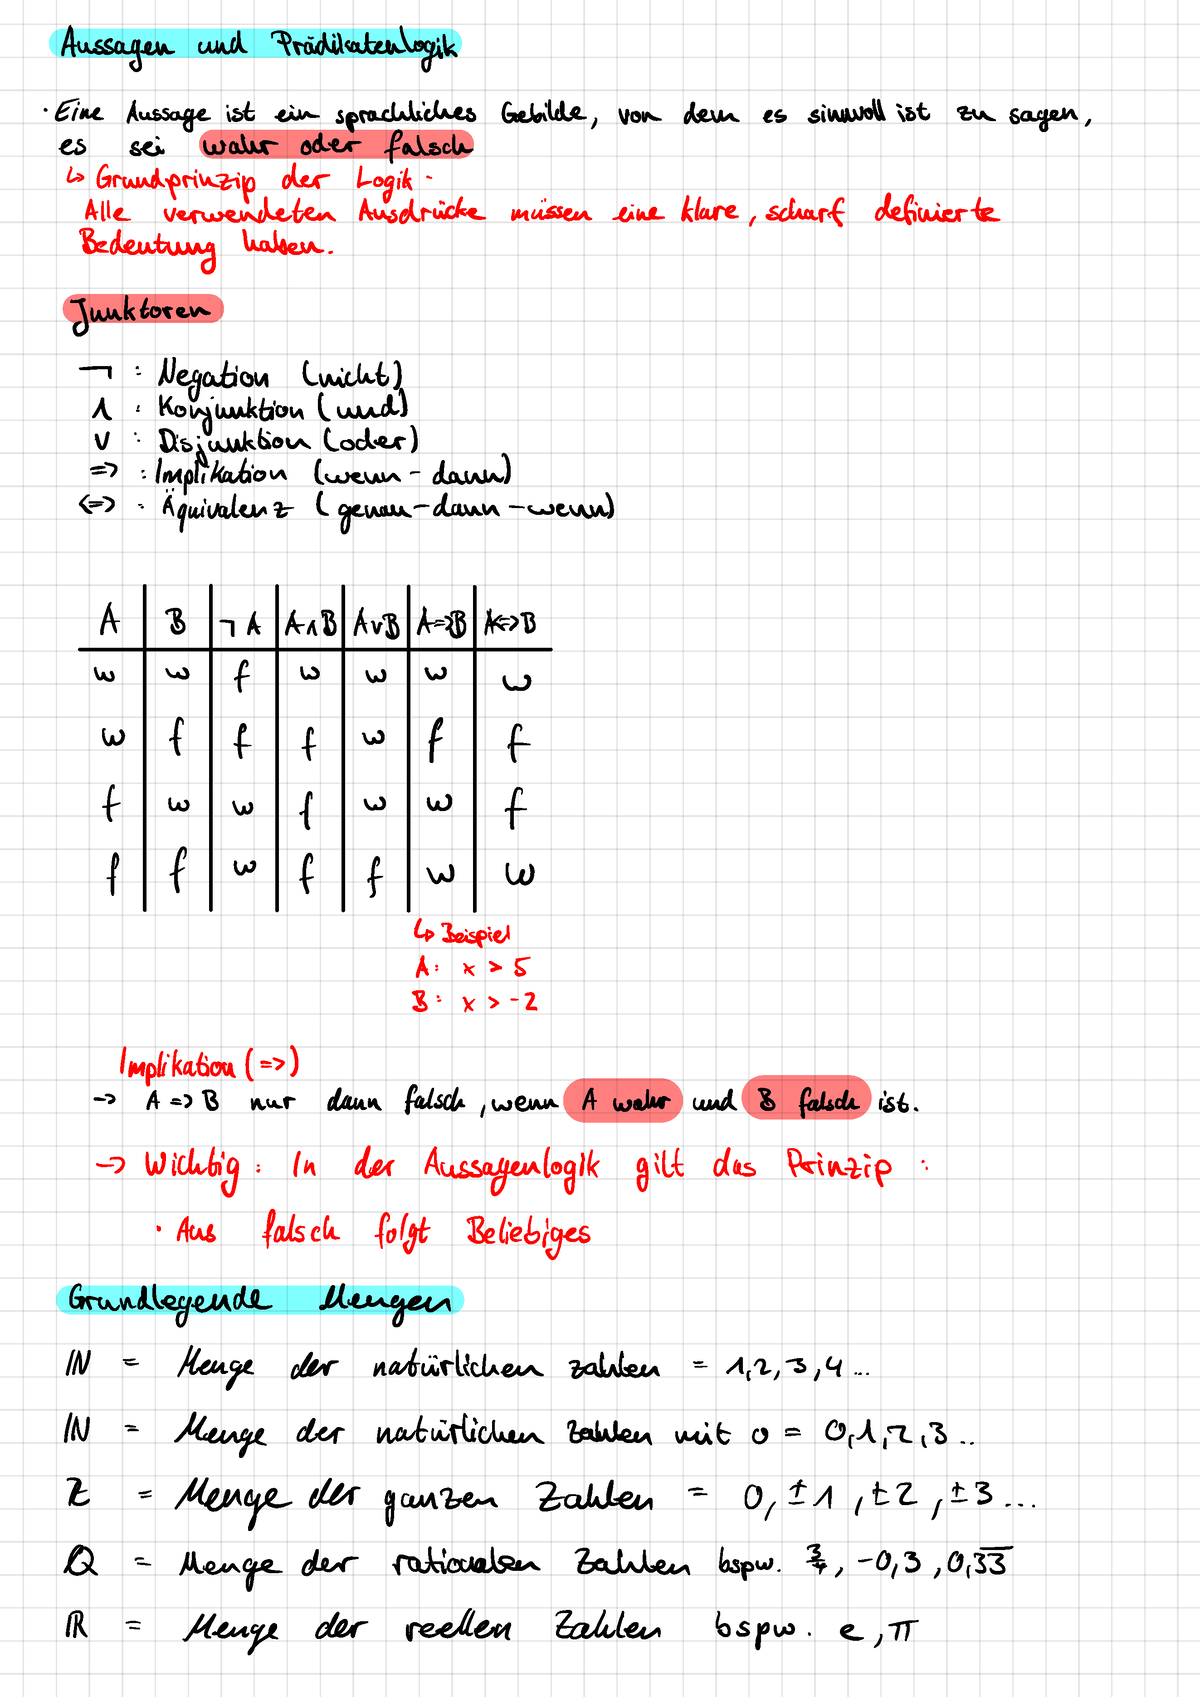 Aussagen und Prädikatenlogik
· Eine Aussage ist ein sprachliches Gebilde, von dem es sinnvoll ist zu sagen,
es sei wahr oder falsch
↳ Grundprinzip der Logik ·
Alle verwendeten Ausdrücke müssen eine klare, scharf definierte
Bedeutung haben.
Junktoren
¬ : Negation (nicht)
∧ : Konjunktion (und)
∨ : Disjunktion (oder)
=> : Implikation (wenn - dann)
<=> : Äquivalenz (genau-dann-wenn)
A B ¬A A∧B A∨B A=>B A<=>B
w w f w w w w
w f f f w f f
f w w f w w f
f f w f f w w
↳ Beispiel
A: x > 5
B: x > -2
Implikation (=>)
-> A => B nur dann falsch, wenn A wahr und B falsch ist.
-> Wichtig: In der Aussagenlogik gilt das Prinzip :
· Aus falsch folgt Beliebiges
Grundlegende Mengen
ℕ = Menge der natürlichen Zahlen = 1,2,3,4...
ℕ = Menge der natürlichen Zahlen mit 0 = 0,1,2,3..
ℤ = Menge der ganzen Zahlen = 0, ±1, ±2, ±3...
ℚ = Menge der rationalen Zahlen bspw. 3/4, -0,3, 0,3̅3̅
ℝ = Menge der reellen Zahlen bspw. e, π